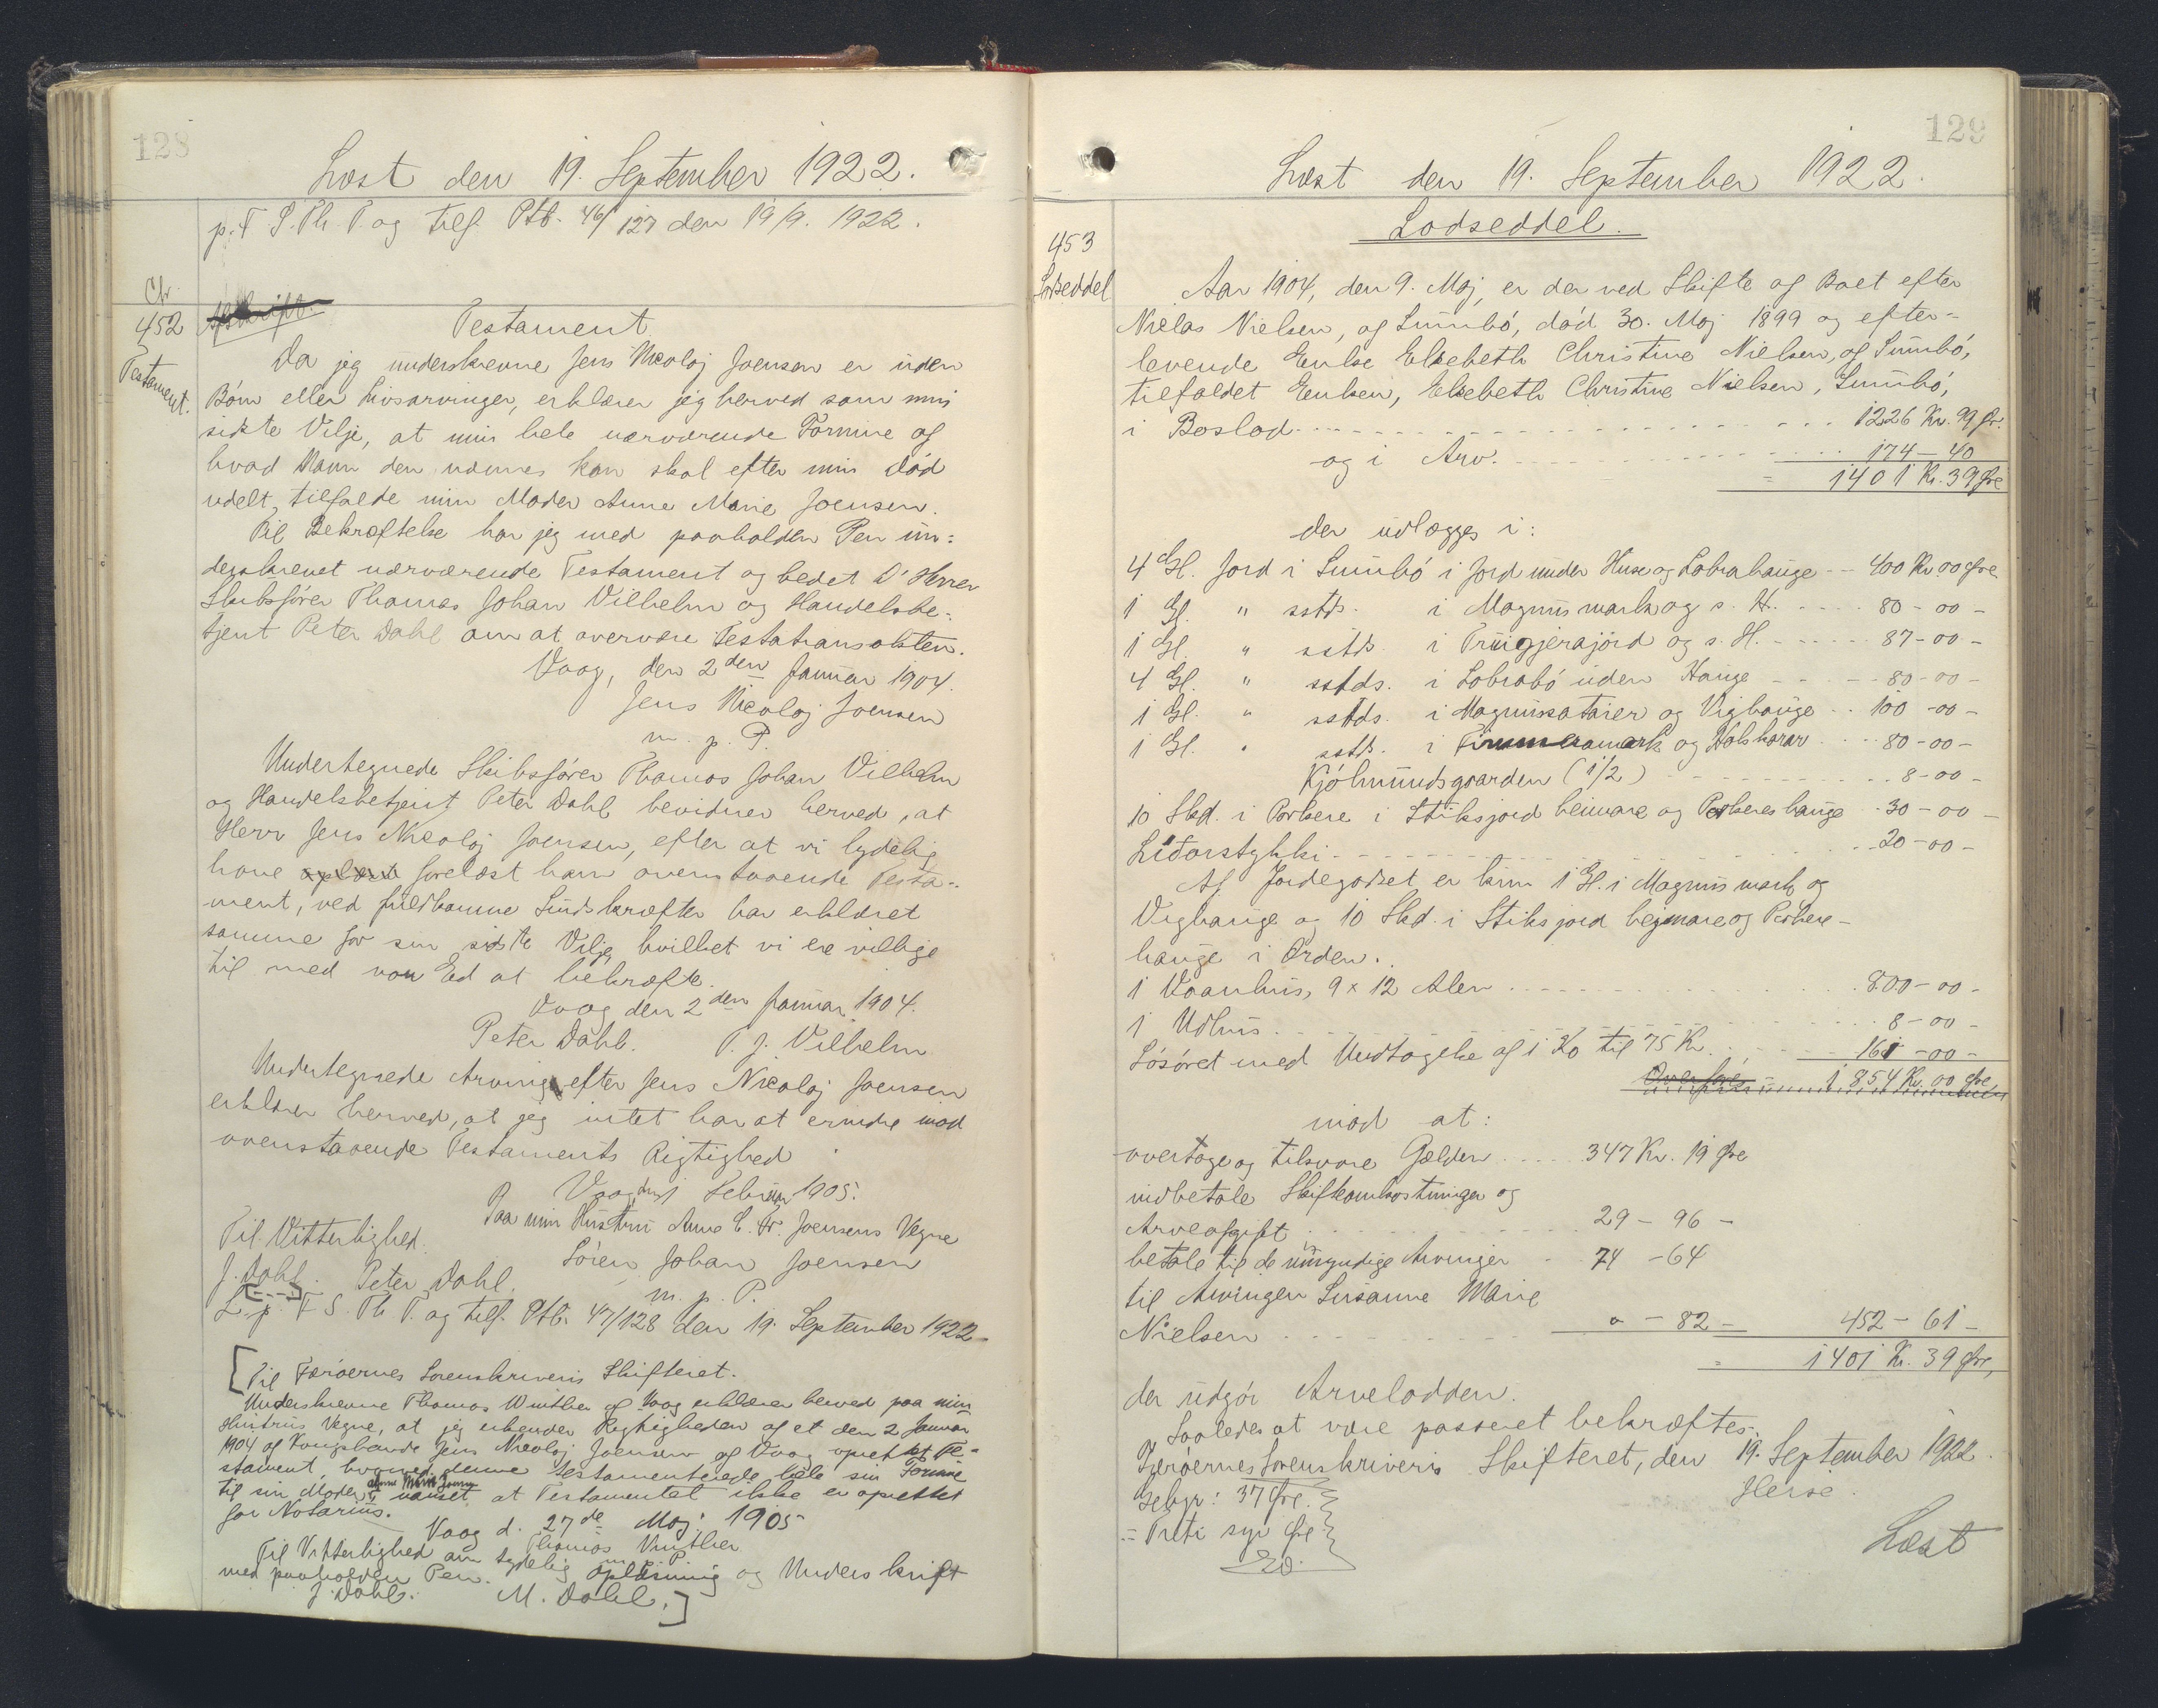 128
Læst den 19. September 1922.
p. T. S. Th. P. og tilf. Ptb. 46/127 den 19/9. 1922.
Afskrift.
452
Testament.
Testament
Da jeg underskrevne Jens Nicolaj Joensen er uden
Børn eller Livsarvinger, erklærer jeg herved som min
sidste Vilje, at min hele nærværende Formue og
hvad Navn den nævnes kan skal efter min Død
udelt, tilfalde min Moder Anne Marie Joensen.
Til Bekræftelse har jeg med paaholden Pen un=
derskrevet nærværende Testament og bedet D' Herrer
Skibsfører Thomas Johan Vilhelm og Handelsbe-
tjent Peter Dahl om at overvære Testationsakten.
Vaag, den 2den Januar 1904.
Jens Nicolaj Joensen
m. p. P.
Undertegnede Skibsfører Thomas Johan Vilhelm
og Handelsbetjent Peter Dahl bevidner herved, at
Herr Jens Nicolaj Joensen, efter at vi lydelig
have oplæst forelæst ham ovenstaaende Testa-
ment, ved fuldkomne Sindskræfter har erklæret
samme for sin sidste Vilje, hvilket vi ere villige
til med vor Ed at bekræfte.
Vaag den 2den Januar 1904.
Peter Dahl. T. J. Vilhelm
Undertegnede Arving efter Jens Nicolaj Joensen
erklærer herved, at jeg intet har at erindre mod
ovenstaaende Testaments Rigtighed
Vaag den 1 Februar 1905.
Paa min Hustru Anne C. Fr. Joensens Vegne
Til Vitterlighed. Sóren Johan Joensen
J. Dahl. Peter Dahl. m. p. P.
L. p. T. S. Th. P. og tilf. Ptb. 47/128 den 19. September 1922
[Til Færøernes Sorenskriveris Skifteret.
Underskrevne Thomas Winther af Vaag erklærer herved paa min
Hustrus Vegne, at jeg erkender Rigtigheden af et den 2 Januar
1904 af Kongsbonde Jens Nicolaj Joensen af Vaag oprettet Te-
stament, hvorved denne testamenterede hele sin Formue
til sin Moder Anne Marie Joensen uanset, at Testamentet ikke er oprettet
for Notarius.
Vaag d. 27de Maj 1905
Thomas Vinther
m. p. P.
Til Vitterlighed om tydelig Oplæsning og Underskrift
med paaholden Pen.
J. Dahl. M. Dahl.]
129
Læst den 19. September 1922.
453
Lodseddel
Lodseddel.
Aar 1904, den 9. Maj, er der ved Skifte af Boet efter
Niclas Nielsen, af Sumbó, død 30. Maj 1899 og efter-
levende Enke Elsebeth Christine Nielsen, af Sumbó,
tilfaldet Enken, Elsebeth Christine Nielsen, Sumbó,
i Boslod 1226 Kr. 99 Ør.
og i Arv. 174 - 40
= 1401 Kr. 39 Øre
der udlægges i:
4 Gl. Jord i Sumbó i Jord under Huse og Lobrahauge 400 Kr. 00 Øre
1 Gl. " sstds. i Magnusmark og s. H. 80 - 00 -
1 Gl. " sstds. i Trugjerajørd og s. H. 87 - 00 -
4 Gl. " sstds. i Lobrabó uden Hauge 80 - 00 -
1 Gl. " sstds. i Magnussataier og Vighauge 100 - 00 -
1 Gl. " sstds. i Timmeramark og Holshorar 80 - 00 -
Kjólmundsgaarden (1/2) 8 - 00 -
10 Skd. i Porkere i Stiksjord heimare og Porkereshauge 30 - 00 -
Liđarstykki 20 - 00 -
Af Jordegodset er kun 1 Gl. i Magnusmark og
Vighauge og 10 Skd. i Stiksjord hejmare og Porkere-
hauge i Orden.
1 Vaanhus, 9 x 12 Alen 800 - 00 -
1 Udhus 8 - 00 -
Løsøret med Undtagelse af 1 Ko til 75 Kr. 161 - 00 -
Overføres = 1854 Kr. 00 Øre
mod at:
overtage og tilsvare Gælden 347 Kr. 19 Øre
indbetale Skifteomkostninger og
Arveafgift 29 - 96 -
betale til de umyndige Arvinger 74 - 64
til Arvingen Susanne Marie
Nielsen 0 - 82 - 452 - 61 -
= 1401 Kr. 39 Øre,
der udgør Arvelodden.
Saaledes at være passeret bekræftes.
Færøernes Sorenskriveris Skifteret, den 19. September 1922.
Heise.
Gebyr: 37 Øre.
= Treti syv Øre
Læst